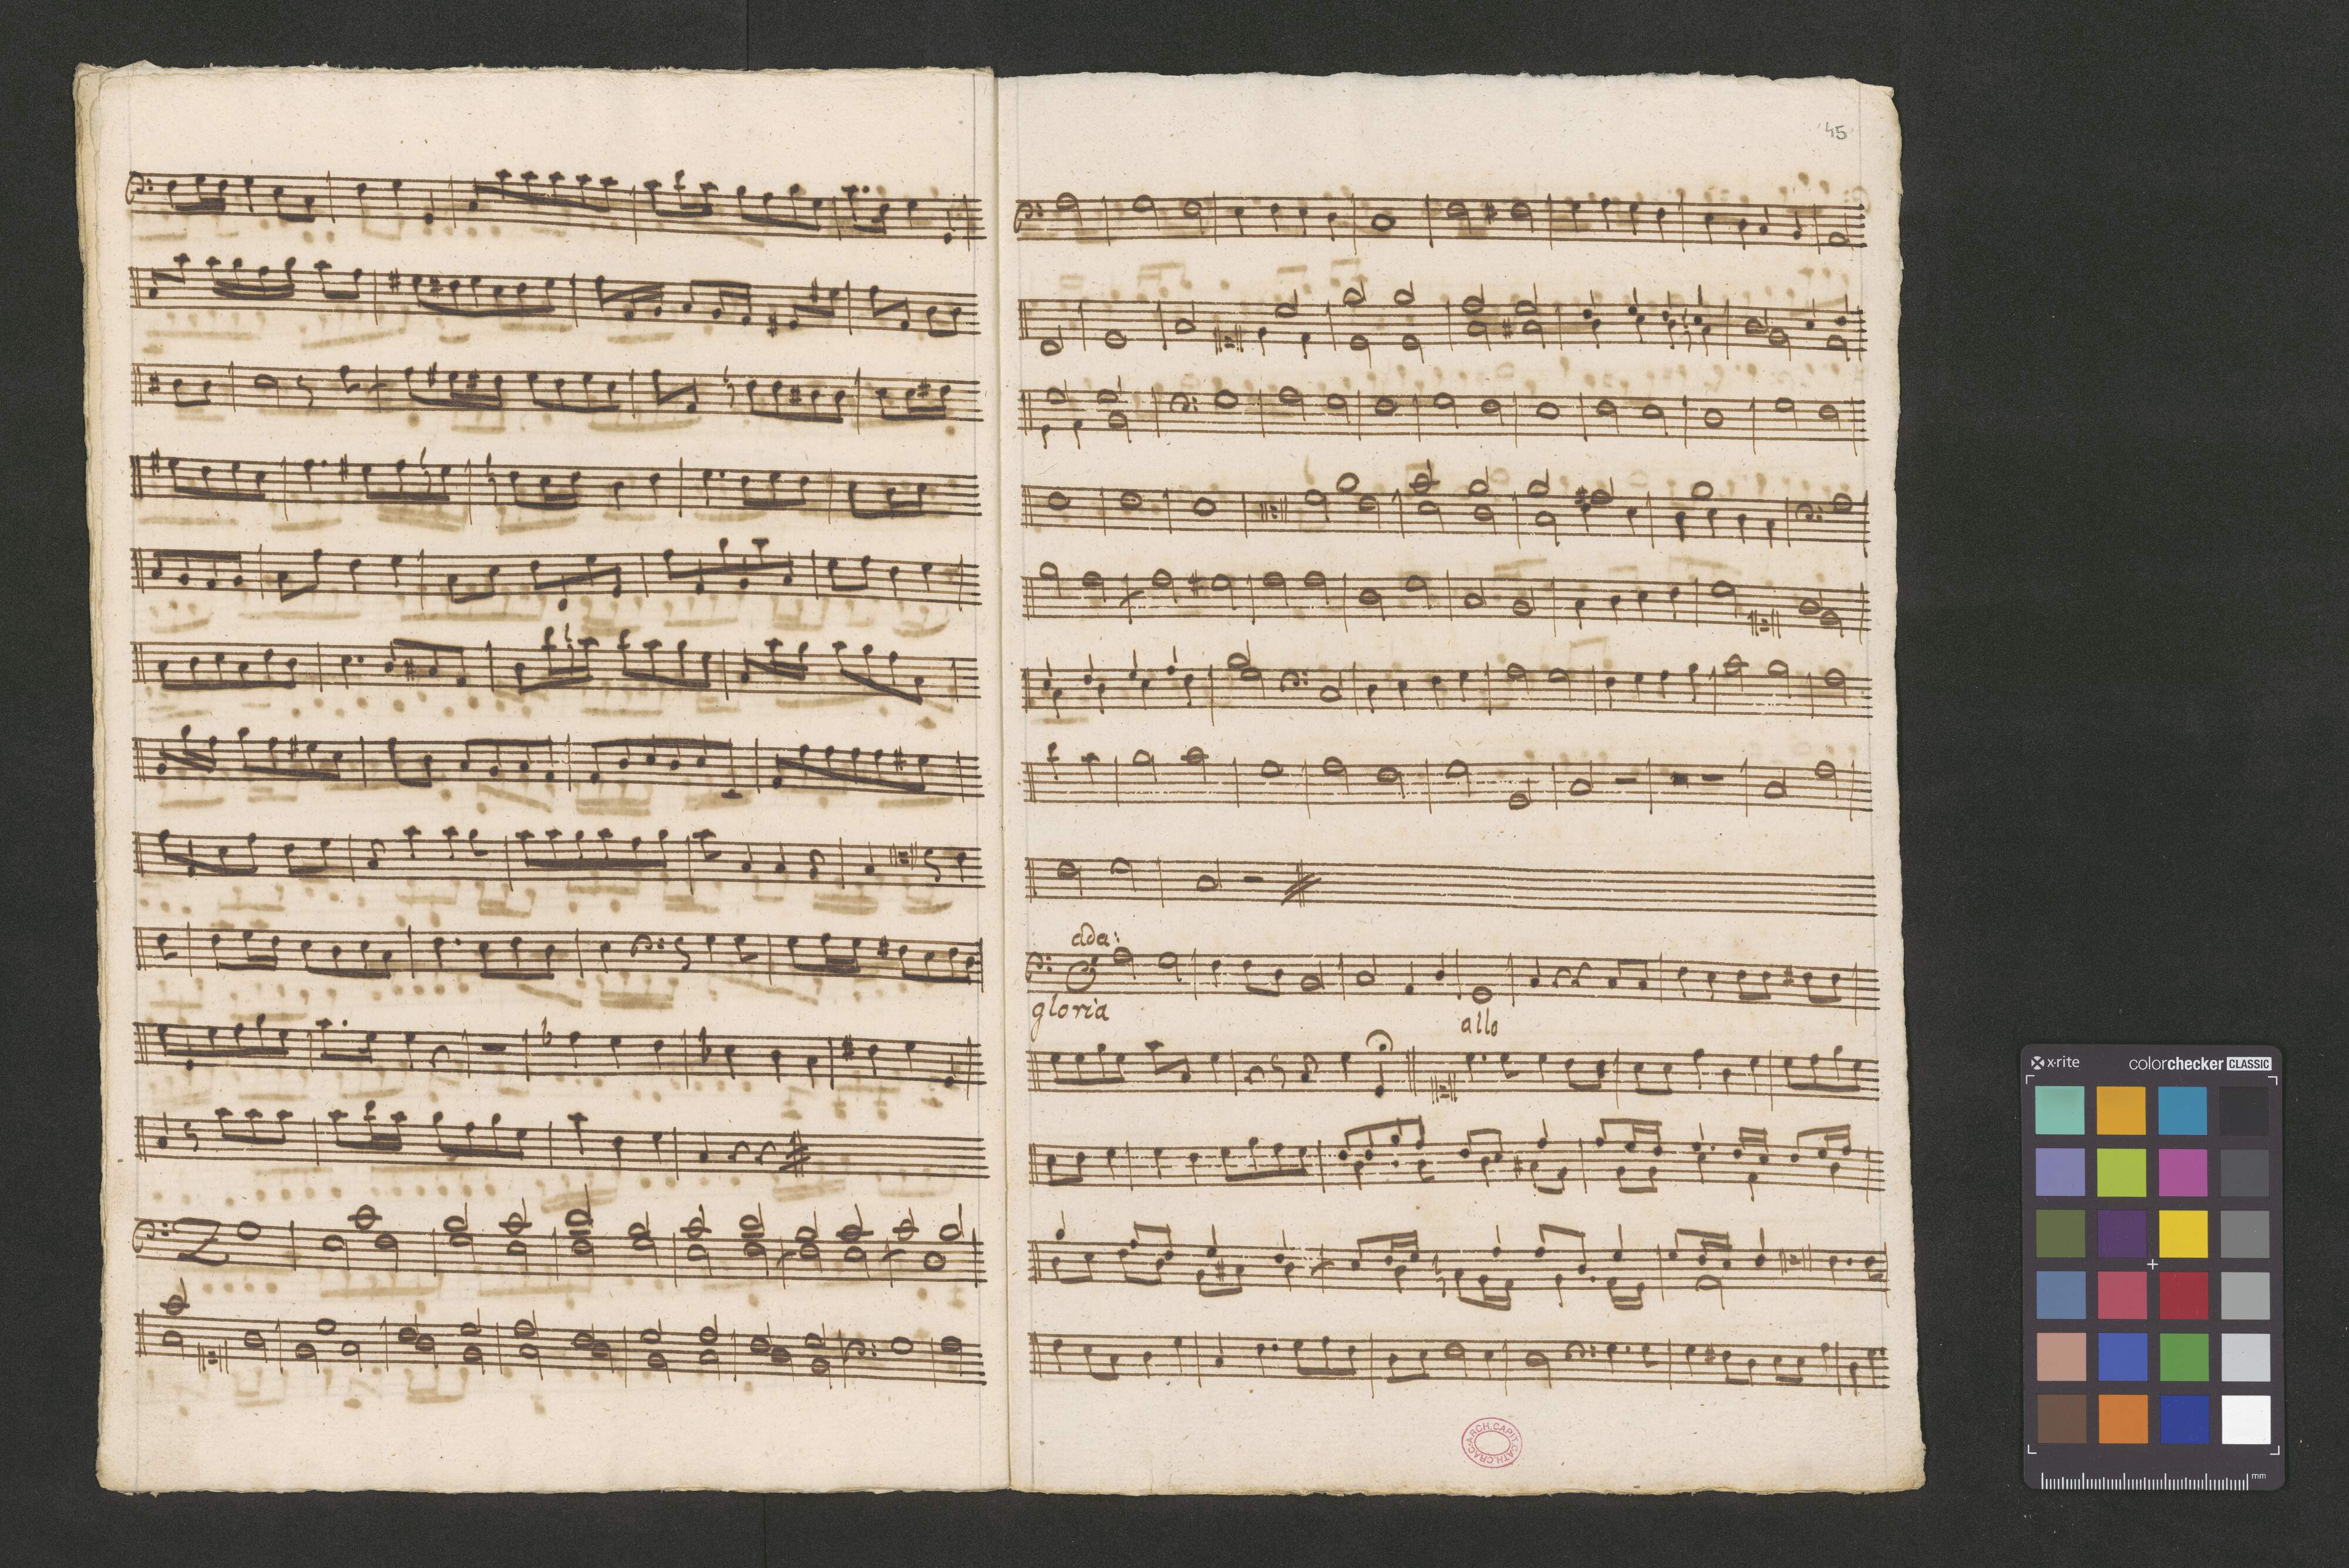 45
ada:
gloria
allo
ARCH.CAPIT.CATH.CRAC.
x-rite
colorchecker CLASSIC
mm